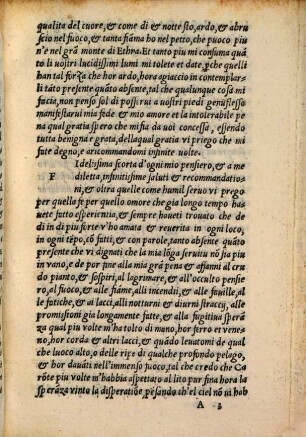 qualita del cuore, & come di & notte sto, ardo, & abru
scio nel fuoco, & tanta fiama ho nel petto, che fuoco piu
n'e nel grã monte di Ethna. Et tanto piu mi consuma quã
to li uostri lucidissimi lumi mi tolete et date, pche quelli
han tal forza che hor ardo, hora agiaccio in contemplar-
li tãto presente quãto absente, tal che qualunque cosa mi
facia, non penso sol di possirui a uostri piedi genuflesso
manifestarui mia fede & mio amore et la intolerabile pe
na qual gratia spero che misia da uoi concessa, essendo
tutta benigna & grata, dellaqual gratia vi priego che mi
fute degno, et aricommandomi infinite uolte.
F Idelissima scorta d'ogni mio pensiero, & a me
diletta, infinitissime saluti & recommandatio
ni, & oltra quelle come humil seruo vi prego
per quella fe per quello omore che gia longo tempo has
uuete fatto esperientia, & sempre haueti trouato che de
dì in dì piu forte v'ho amata & reuerita in ogni loco,
in ogni tẽpo, cõ fatti, & con parole, tanto absente quãto
presente che vi dignati che la mia lõga seruitu nõ sia piu
in vano, e de por fine alla mia grã pena & affanni al cru
do pianto, & sospiri, al lagrimare, & all'occulto pensie
ro, al fuoco, & alle fiãme, alli incendii, & alle fauille, al
le fatiche, & ai lacci, alli notturni & diurni stracci, alle
promissioni gia longamente fatte, & alla fugitiua sperã
za qual piu volte m'ha tolto di mano, hor ferro et vene-
no, hor corda & altri lacci, & quãdo leuatomi de qual
che luoco alto, o delle ripe di qualche profondo pelago,
& hor dauãti nell'immenso fuoco, tal che credo che Ca
rõte piu volte m'habbia aspettato al lito pur fina hora la
sperãza vinto la disperatiõe pẽsando ch'el ciel nõ m hab
A 3